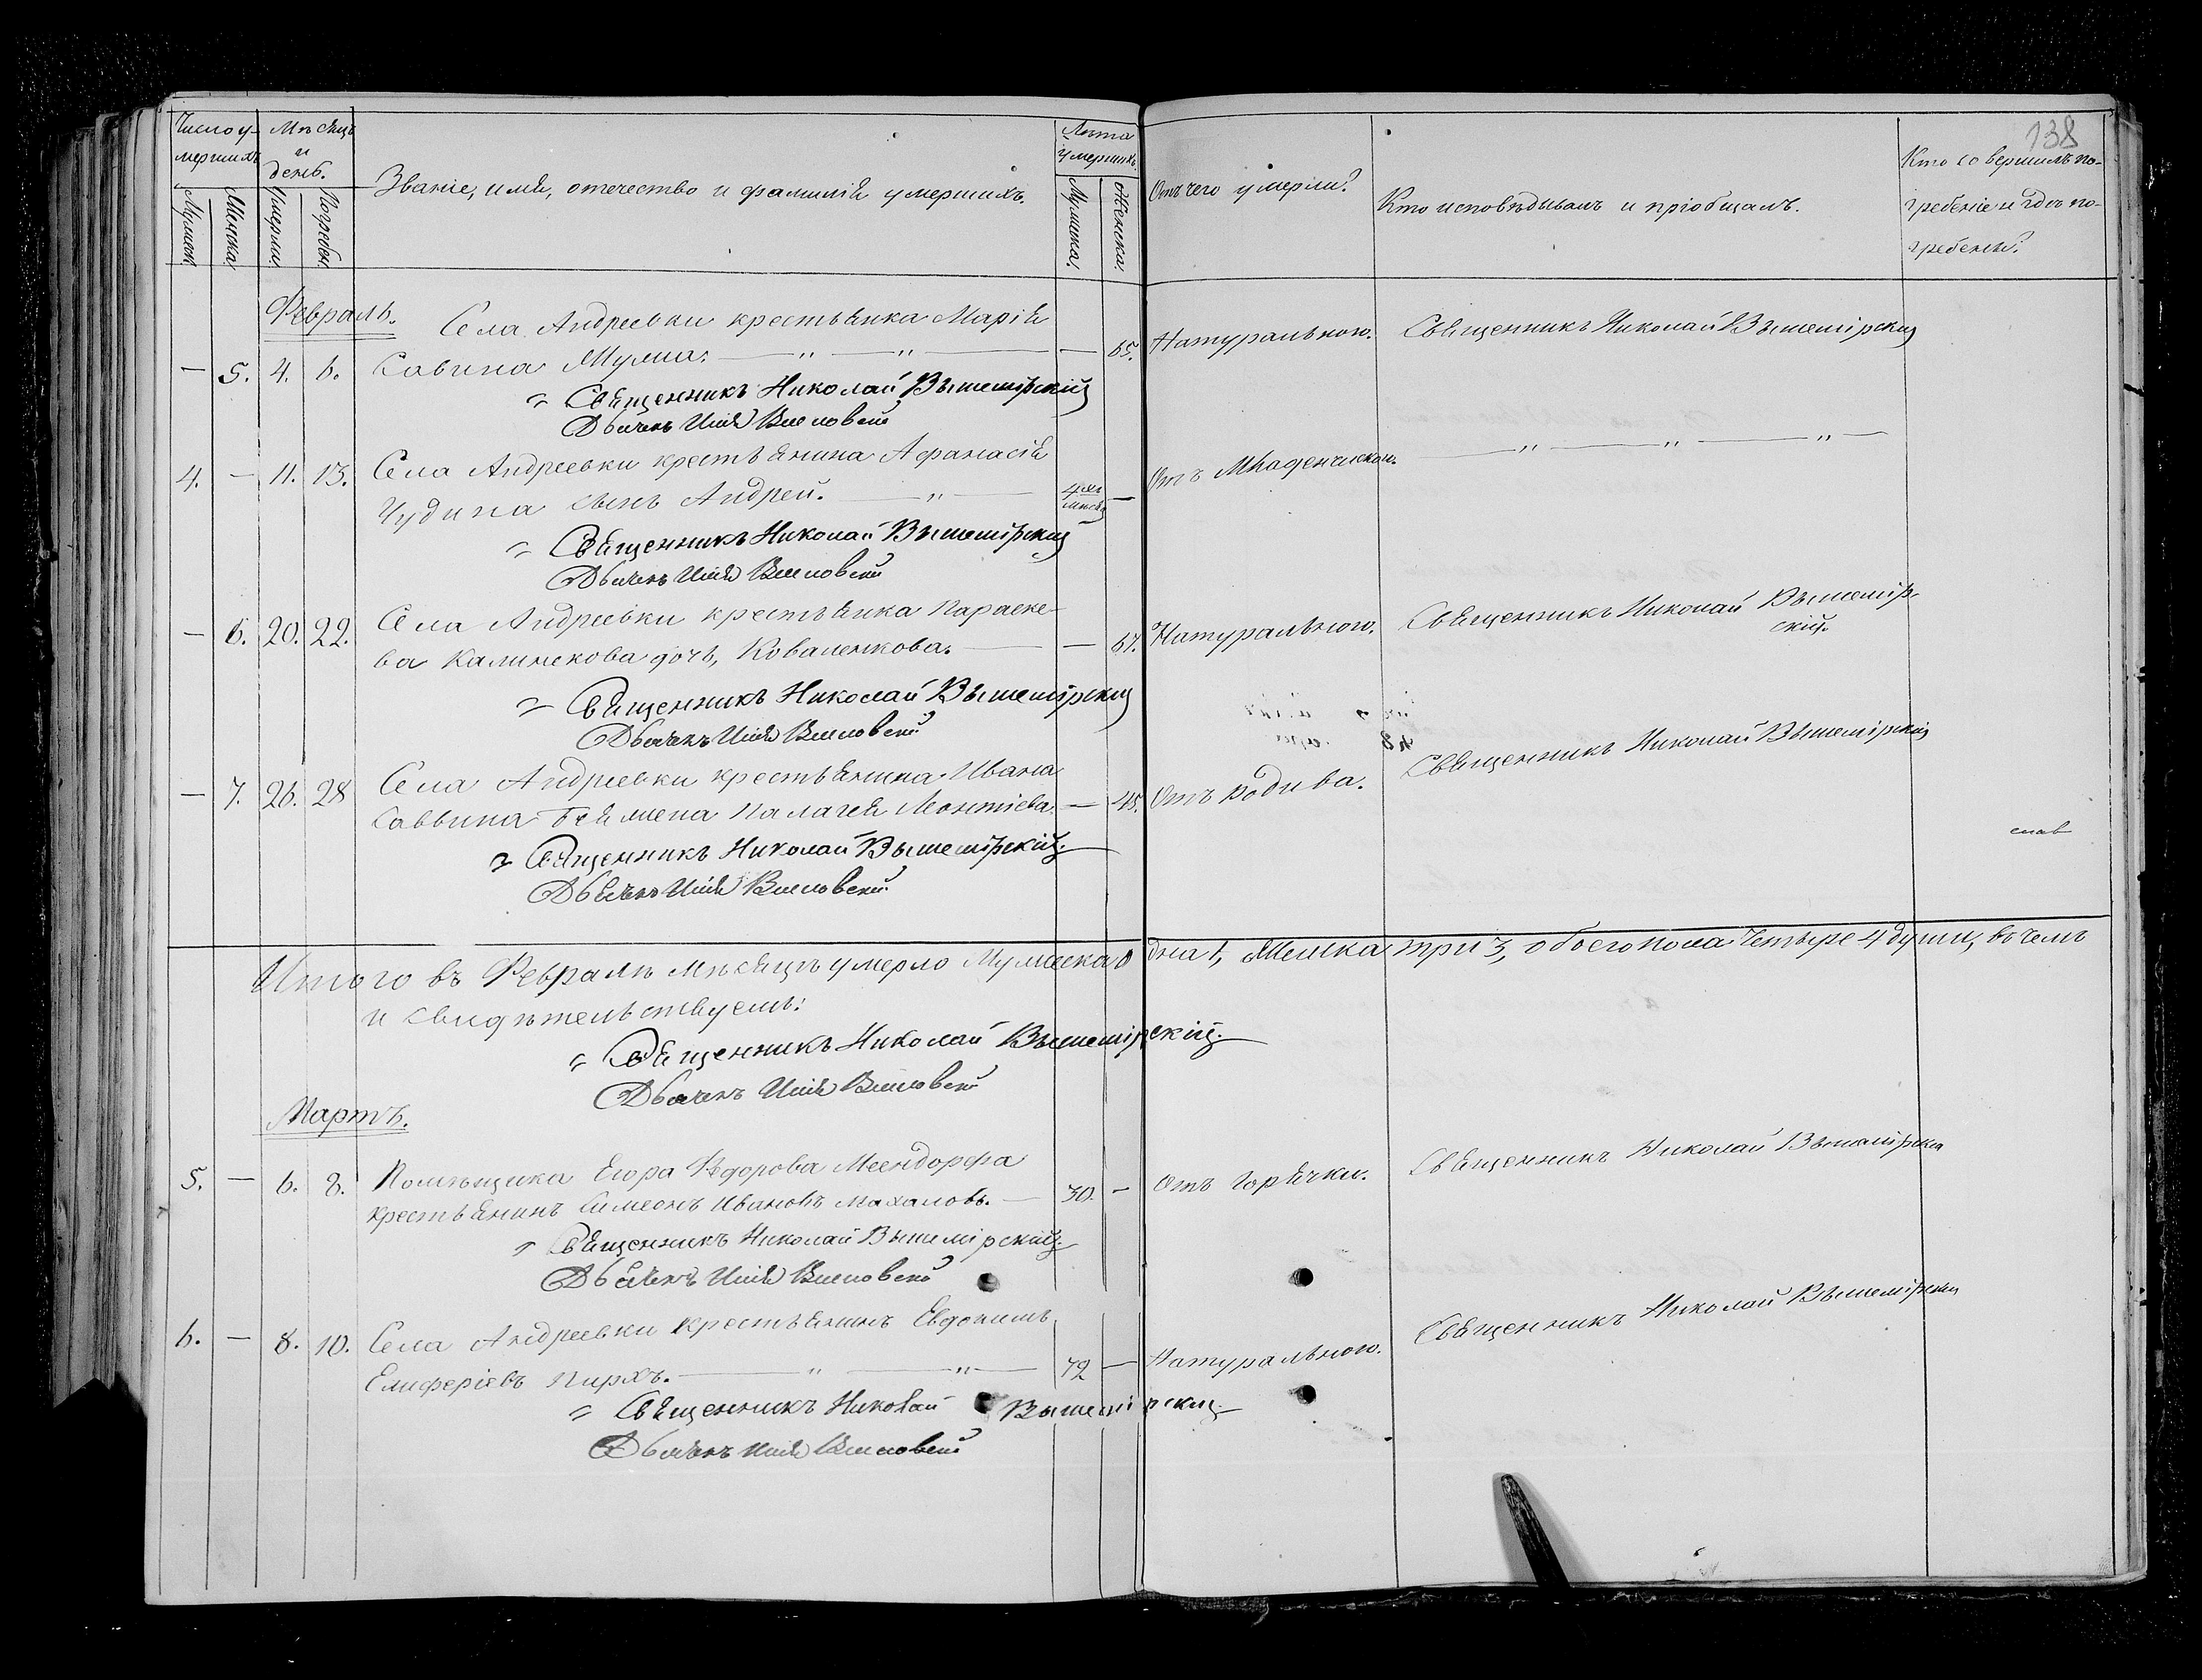 138
Число у-
мершихъ
Мѣсяцъ
и
день.
Званіе, имя, отечество и фамилія умершихъ.
Лѣта
умершихъ
Отъ чего умерли?
Кто исповѣдывалъ и пріобщалъ.
Кто совершилъ по-
гребеніе и гдѣ по-
гребены?
Мужеск.
Женска.
Умерли.
Погребен.
Мужеска.
Женска.
Февраль.
Села Андреевки крестьянка Марія
— 5. 4. 6. Савина — „ — „ — — 65. Натуральною. Священникъ Николай Вышемірскій
Священникъ Николай Вышемірскій
Дьячекъ Илія
Села Андреевки крестьянина Афанасія
4. — 11. 13. Чудина сынъ Андрей. — „ — 4 — Отъ Младенческой. — „ — „ — „ —
Священникъ Николай Вышемірскій
Дьячекъ Илія
Села Андреевки крестьянка Параске-
— 6. 20. 22. ва Калинекова дочь, Коваленкова. — — 67. Натуральною. Священникъ Николай Вышемір-
скій.
Священникъ Николай Вышемірскій
Дьячекъ Илія
Села Андреевки крестьянина Ивана
— 7. 26. 28 Саввина жена Палагея Леонтіева. — 45. Отъ родива. Священникъ Николай Вышемірскій
Священникъ Николай Вышемірскій.
Дьячекъ Илія
Итого въ Февралѣ мѣсяцѣ умерло Мужеска одна 1, Женска три 3, обоего пола четыре 4 души, въ чемъ
и свидѣтельствуемъ:
Священникъ Николай Вышемірскій.
Дьячекъ Илія
Мартъ.
Помѣщика Егора Ѳедорова Меендорфа
5. — 6. 8. крестьянинъ Симеонъ Ивановъ Махаловъ. — 30. — Отъ горячки. Священникъ Николай Вышемірскій
Священникъ Николай Вышемірскій.
Дьячекъ Илія
6. — 8. 10. Села Андреевки крестьянинъ Евдокимъ
Елиферіевъ — „ — „ — 72 — Натуральною. Священникъ Николай Вышемірскій
Священникъ Николай Вышемірскій.
Дьячекъ Илія